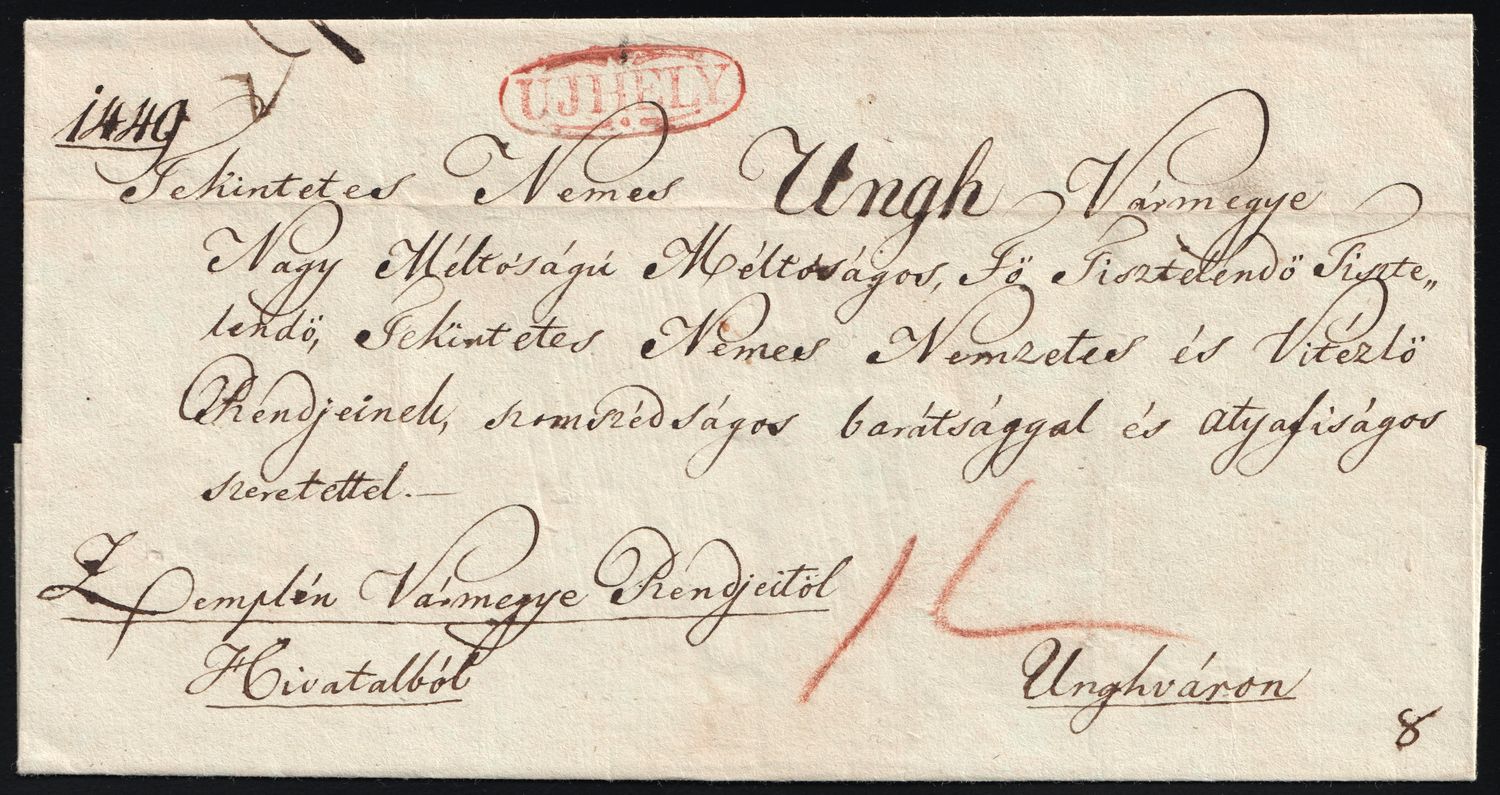 ÚJHELY
1449
Tekintetes Nemes Ungh Vármegye
Nagy Méltóságú Méltóságos, Fö Tisztelendö Tiszte„
lendö, Tekintetes Nemes Nemzetes és Vitézlö
Rendjeinek, szomszédságos barátsággal és atyafiságos
szeretettel.—
Zemplén Vármegye Rendjeitöl
Hivatalból
Unghváron
8